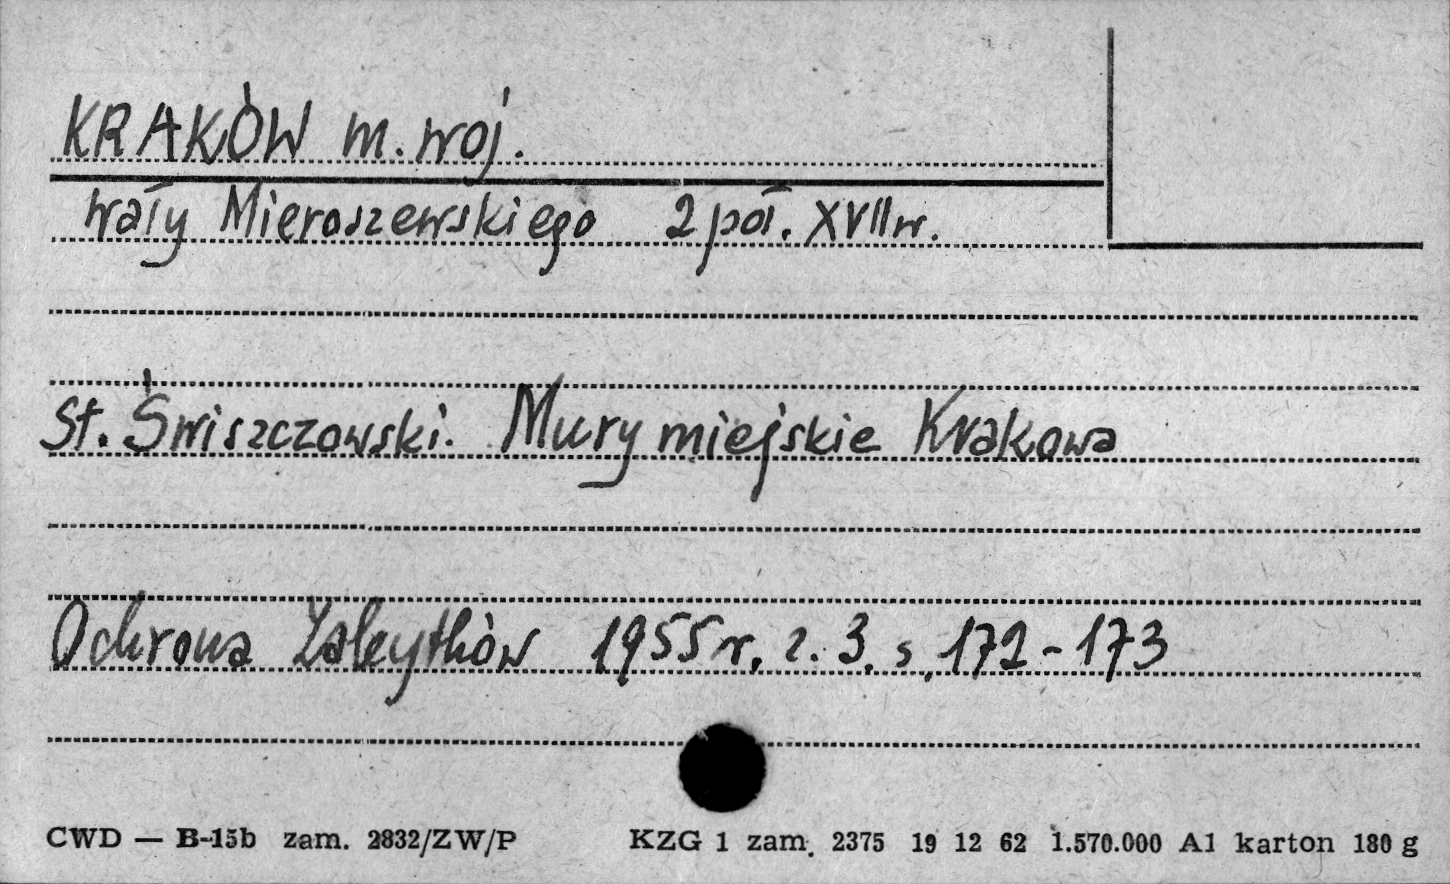 KRAKÓW m. woj.
wały Mieroszewskiego 2 poł. XVII w.
St. Świszczowski. Mury miejskie Krakowa
Ochrona Zabytków 1955 r. z. 3. s. 172-173
CWD — B-15b zam. 2832/ZW/P KZG 1 zam. 2375 19 12 62 1.570.000 A1 karton 180 g